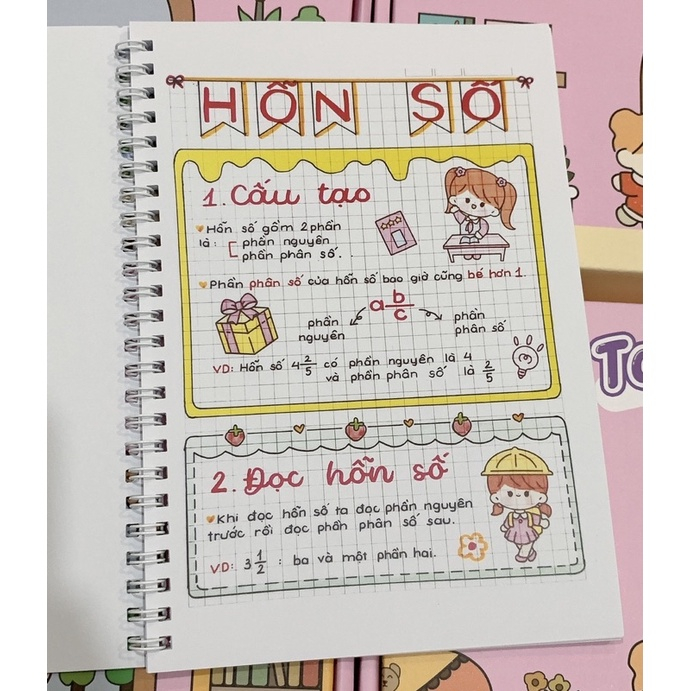 HỖN SỐ
1. Cấu tạo
Hỗn số gồm 2 phần
là: phần nguyên
phần phân số.
Phần phân số của hỗn số bao giờ cũng bé hơn 1.
a b/c
phần nguyên
phần phân số
VD: Hỗn số 4 2/5 có phần nguyên là 4
và phần phân số là 2/5
2. Đọc hỗn số
Khi đọc hỗn số ta đọc phần nguyên
trước rồi đọc phần phân số sau.
VD: 3 1/2 : ba và một phần hai.
To